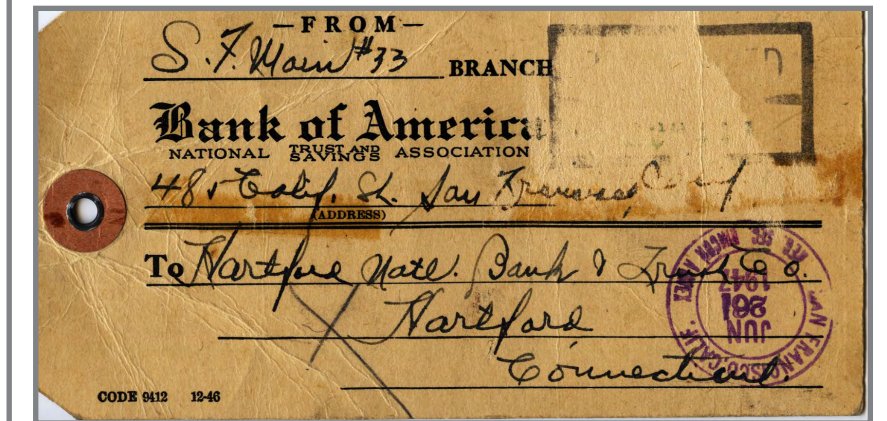 — FROM —
S. F. Main #33 BRANCH
Bank of America
NATIONAL TRUST AND SAVINGS ASSOCIATION
485 Calif. St. San Francisco, Calif
(ADDRESS)
To Hartford Natl. Bank & Trust Co.
Hartford
Connecticut.
CODE 9412 12-46
SAN FRANCISCO, CALIF.
JUN
1947